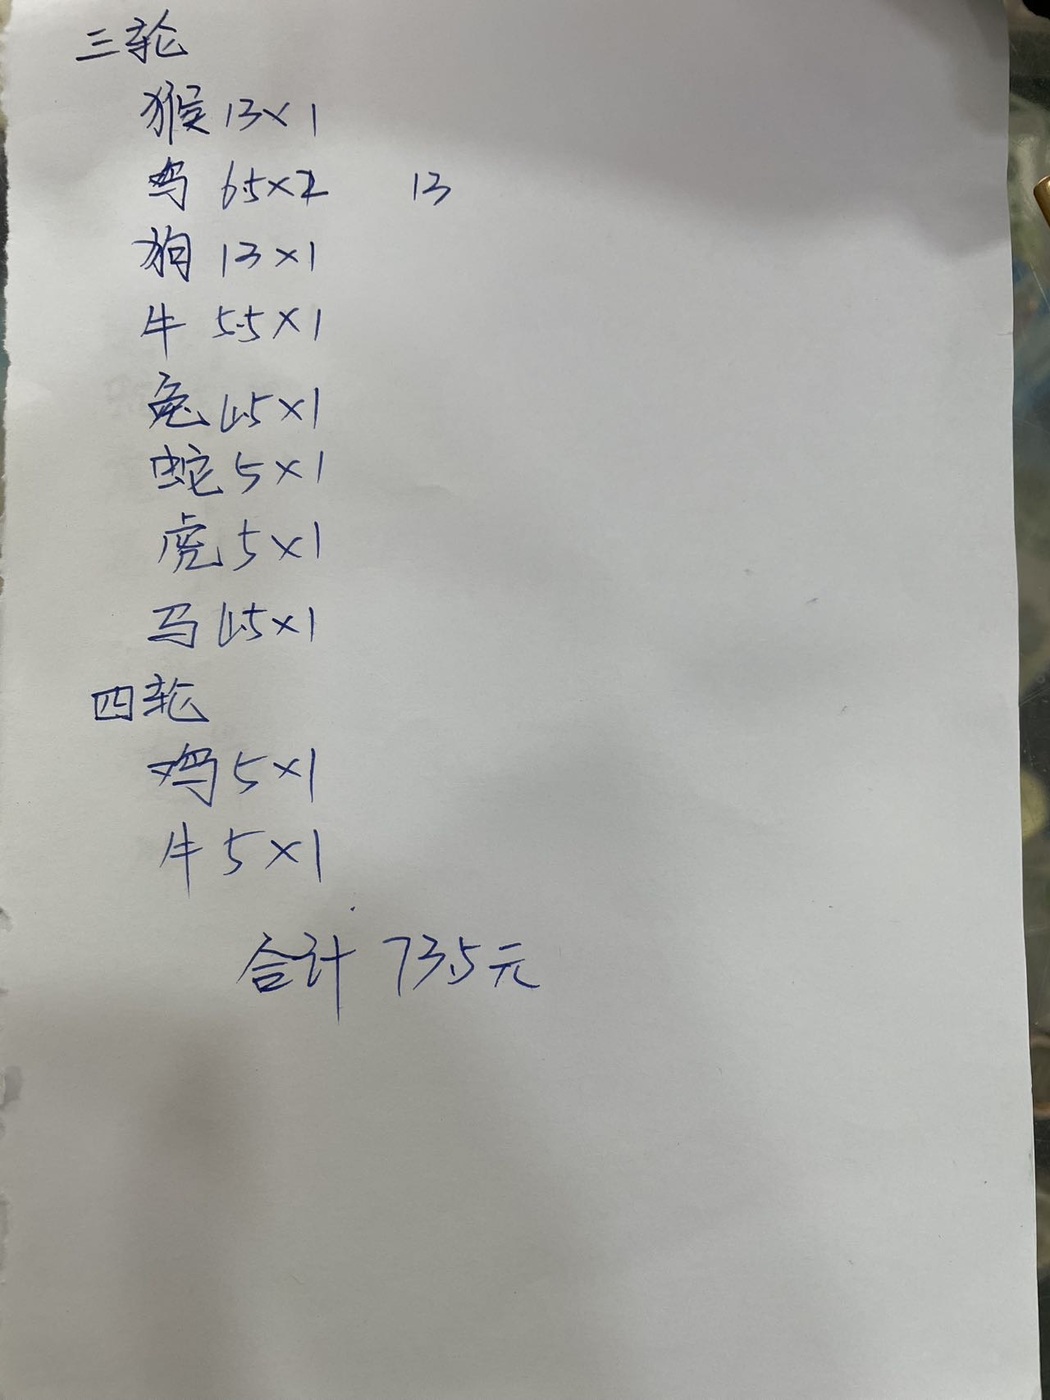 三轮
猴 13×1
鸡 6.5×2 13
狗 13×1
牛 5.5×1
兔 4.5×1
蛇 5×1
虎 5×1
马 4.5×1
四轮
鸡 5×1
牛 5×1
合计 73.5元